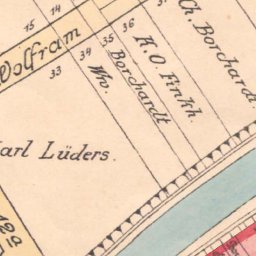 15
14
Wolfram
33
34
35
36
Ww.
Borchardt
H. O. Finkh.
Ch. Borchard
arl Lüders.
129